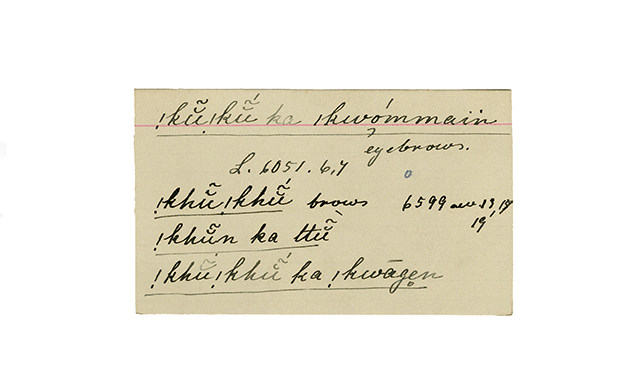 ǃkũ̆ǃkũ̆́ ka ǃkwómmain
eyebrows.
L. 6051. 6,7
ǃkhũ̆ǃkhũ̆́ brows 6599 rev 13, 17
19
ǃkhũ̆n ka ttũ̆
ǃkhũ̆ǃkhũ̆́ ka ǃkwāgen